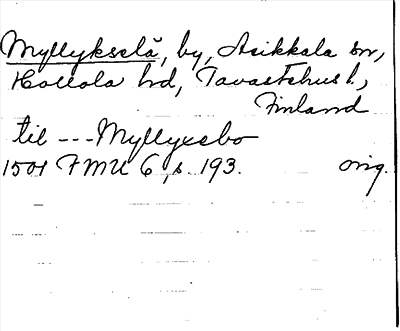 Myllykselä, by, Asikkala sn,
Hollola hd, Tavastehus l.,
Finland
til --- Myllyxebo
1501 FMU 6, s. 193. orig.